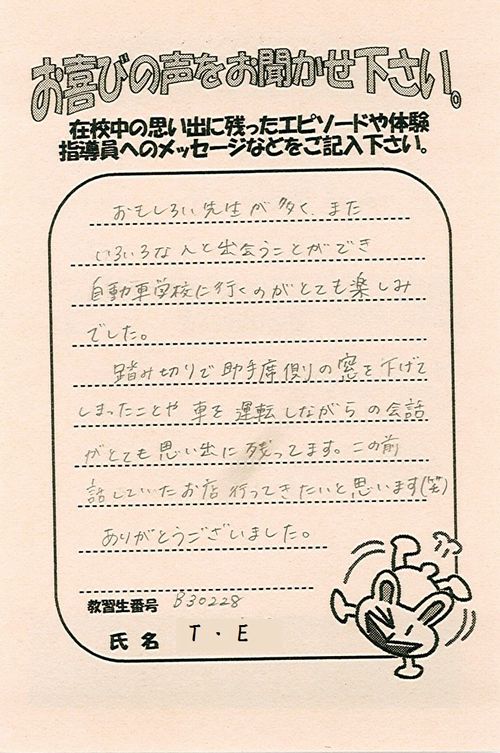 お喜びの声をお聞かせ下さい。
在校中の思い出に残ったエピソードや体験
指導員へのメッセージなどをご記入下さい。
おもしろい先生が多く、また
いろいろな人と出会うことができ
自動車学校に行くのがとても楽しみ
でした。
踏み切りで助手席側の窓を下げて
しまったことや車を運転しながらの会話
がとても思い出に残ってます。この前
話していたお店行ってきたいと思います(笑)
ありがとうございました。
教習生番号 B30228
氏名 T・E